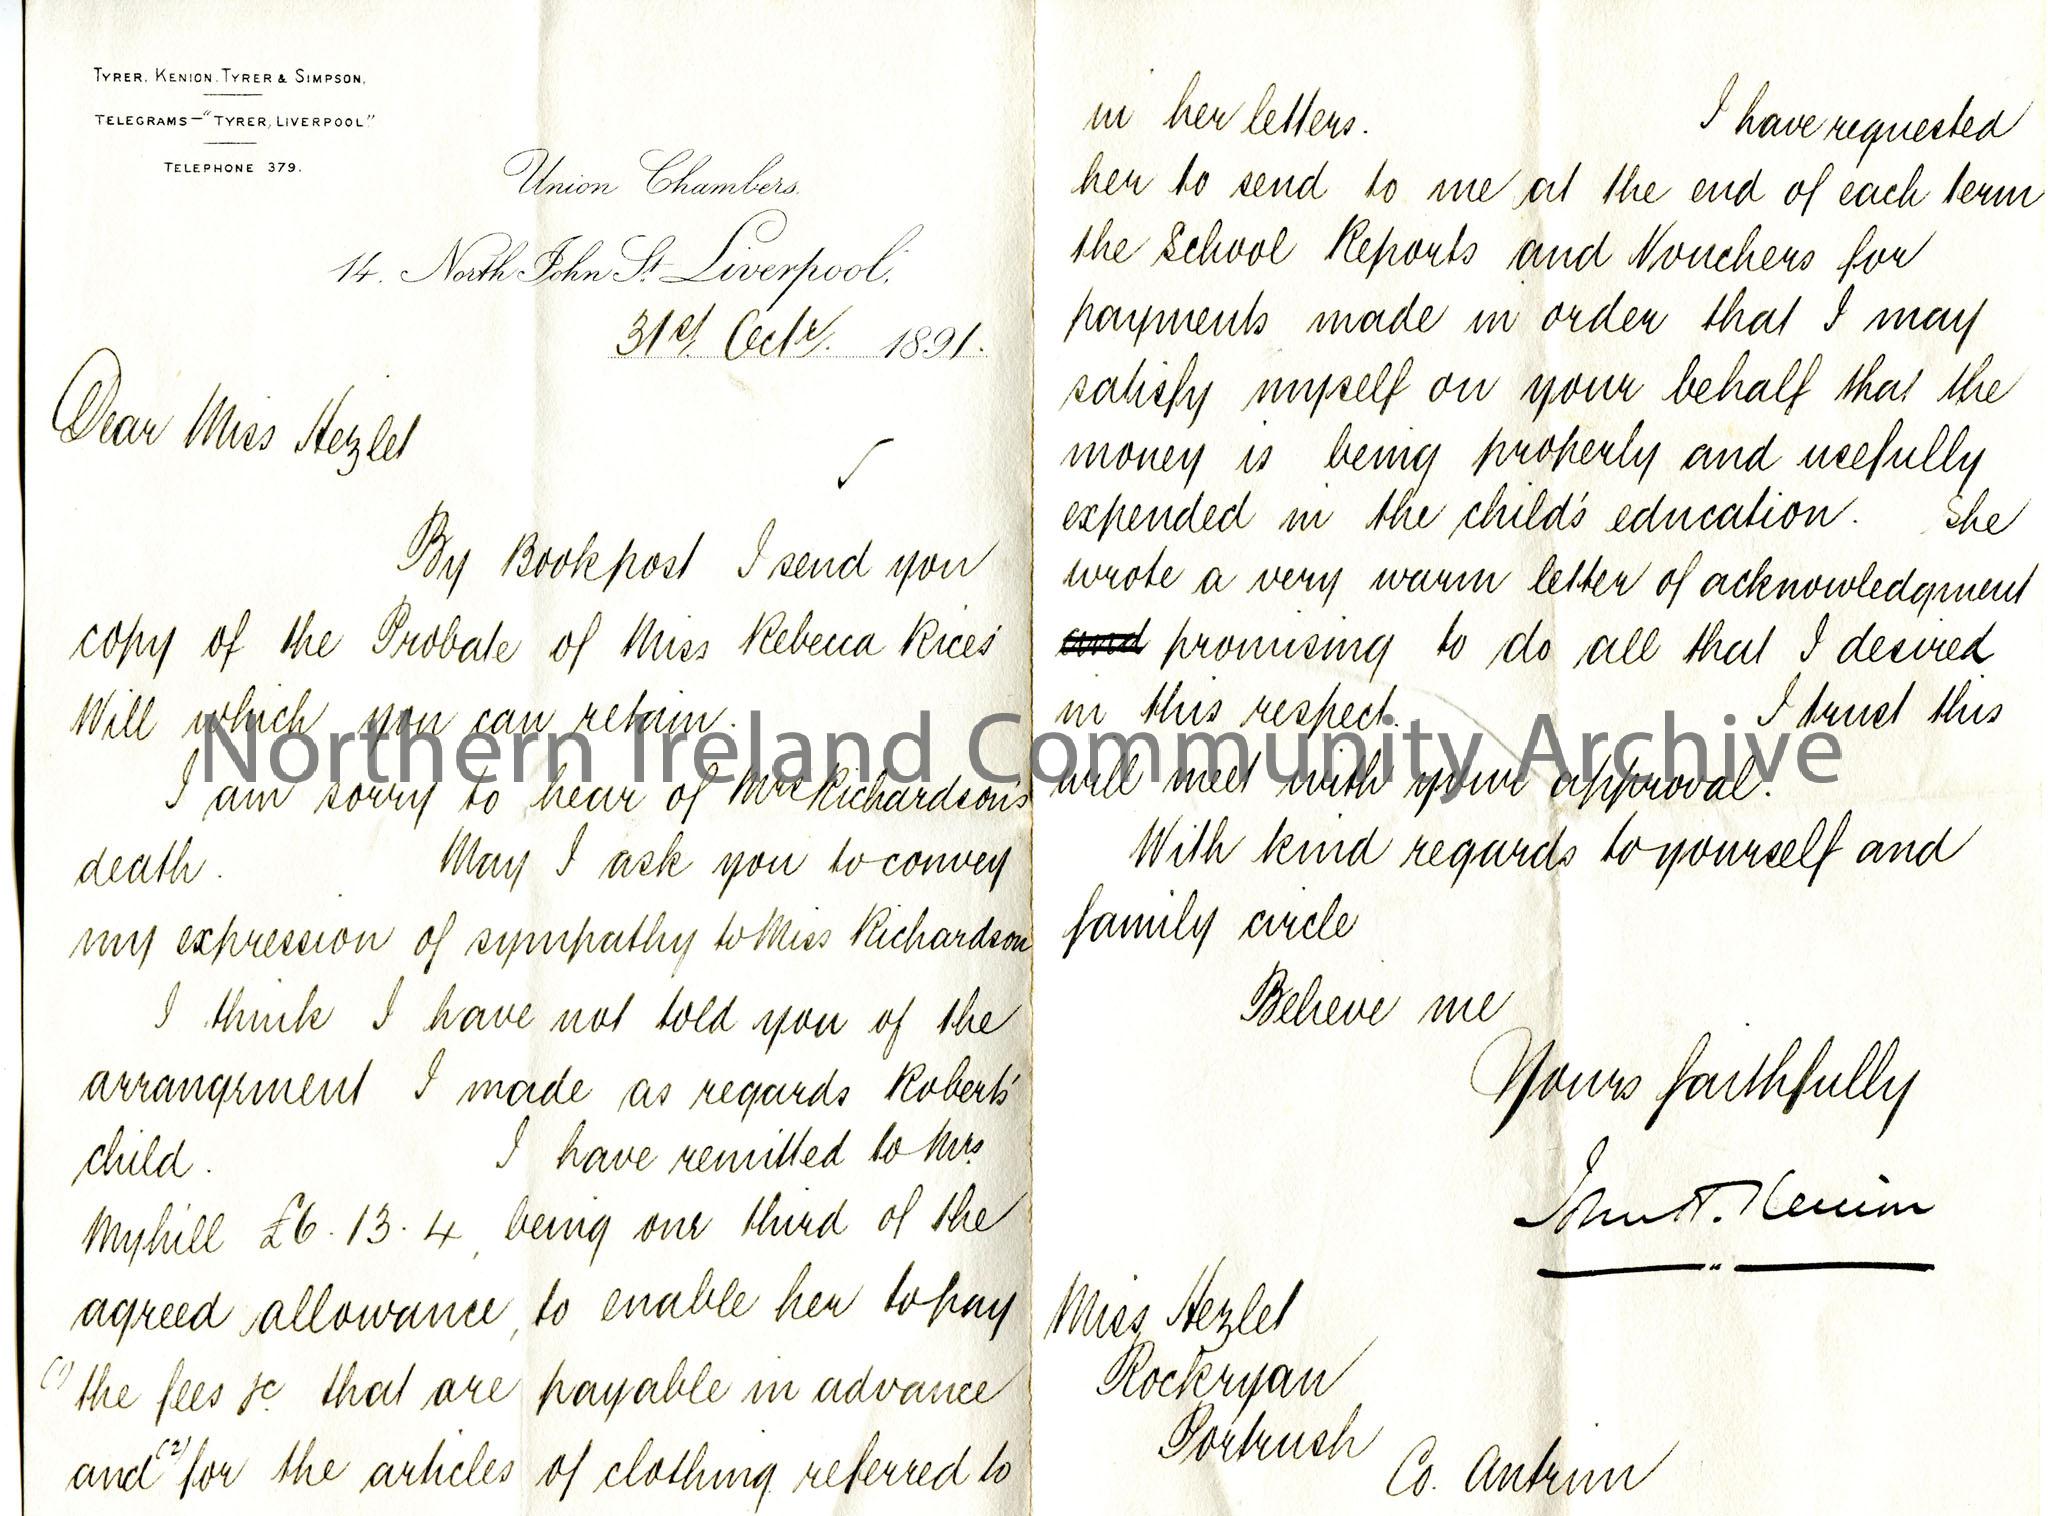 TYRER, KENION, TYRER & SIMPSON.
TELEGRAMS—"TYRER, LIVERPOOL."
TELEPHONE 379.
Union Chambers.
14. North John St. Liverpool,
31st Octr. 1891.
Dear Miss Hezlet
By Bookpost I send you
copy of the Probate of Miss Rebecca Rices'
Will which you can retain.
I am sorry to hear of Mrs Richardson's
death. May I ask you to convey
my expression of sympathy to Miss Richardson
I think I have not told you of the
arrangement I made as regards Robert's
child. I have remitted to Mrs
Myhill £6.13.4, being one third of the
agreed allowance, to enable her to pay
(1) the fees &c that are payable in advance
and (2) for the articles of clothing referred to
in her letters. I have requested
her to send to me at the end of each term
the School Reports and Vouchers for
payments made in order that I may
satisfy myself on your behalf that the
money is being properly and usefully
expended in the child's education. She
wrote a very warm letter of acknowledgment
and promising to do all that I desired
in this respect. I trust this
will meet with your approval.
With kind regards to yourself and
family circle
Believe me
Yours faithfully
John Kenion
Miss Hezlet
Rockryan
Portrush
Co. Antrim
Northern Ireland Community Archive